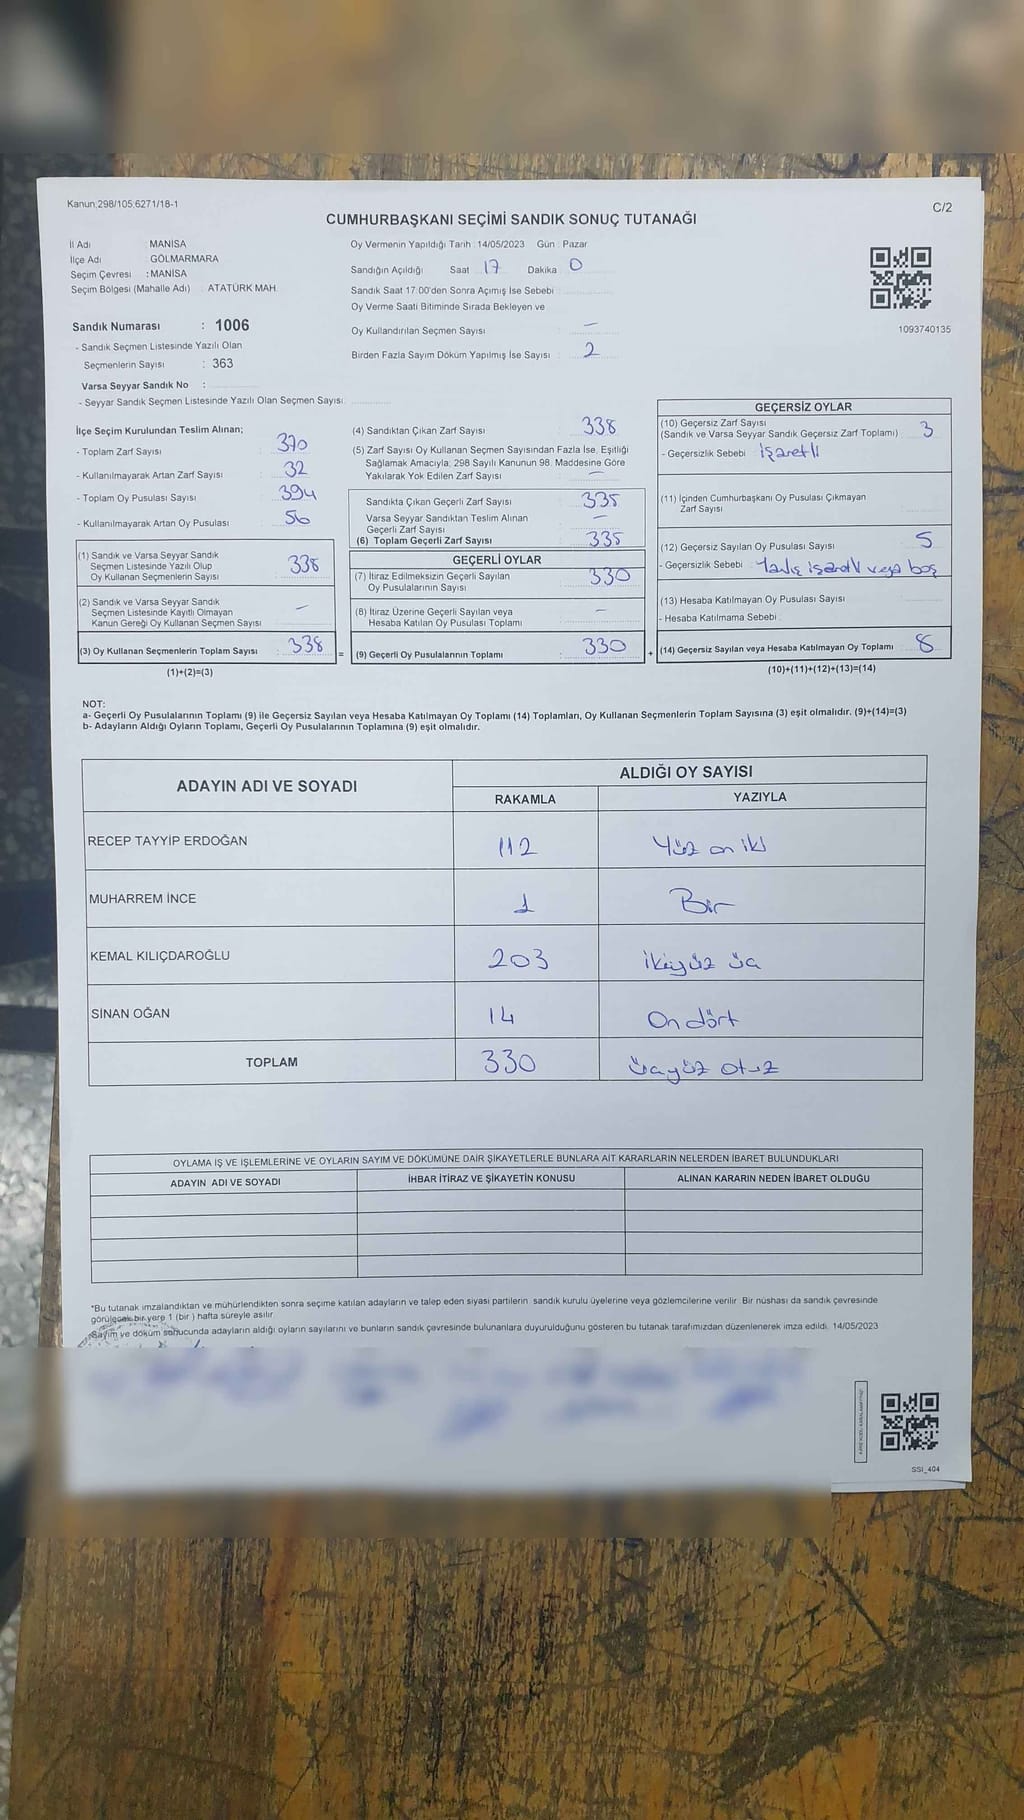 Kanun:298/105;6271/18-1
C/2
CUMHURBAŞKANI SEÇİMİ SANDIK SONUÇ TUTANAĞI
İl Adı : MANİSA
İlçe Adı : GÖLMARMARA
Seçim Çevresi : MANİSA
Seçim Bölgesi (Mahalle Adı) : ATATÜRK MAH.
Sandık Numarası : 1006
- Sandık Seçmen Listesinde Yazılı Olan
Seçmenlerin Sayısı : 363
Varsa Seyyar Sandık No :
- Seyyar Sandık Seçmen Listesinde Yazılı Olan Seçmen Sayısı:
Oy Vermenin Yapıldığı Tarih : 14/05/2023 Gün : Pazar
Sandığın Açıldığı Saat 17 Dakika 0
Sandık Saat 17:00'den Sonra Açımış İse Sebebi :
Oy Verme Saati Bitiminde Sırada Bekleyen ve
Oy Kullandırılan Seçmen Sayısı : —
Birden Fazla Sayım Döküm Yapılmış İse Sayısı : 2
1093740135
İlçe Seçim Kurulundan Teslim Alınan;
- Toplam Zarf Sayısı : 370
- Kullanılmayarak Artan Zarf Sayısı : 32
- Toplam Oy Pusulası Sayısı : 394
- Kullanılmayarak Artan Oy Pusulası : 56
(1) Sandık ve Varsa Seyyar Sandık
Seçmen Listesinde Yazılı Olup
Oy Kullanan Seçmenlerin Sayısı : 338
(2) Sandık ve Varsa Seyyar Sandık
Seçmen Listesinde Kayıtlı Olmayan
Kanun Gereği Oy Kullanan Seçmen Sayısı : —
(3) Oy Kullanan Seçmenlerin Toplam Sayısı : 338
(1)+(2)=(3)
(4) Sandıktan Çıkan Zarf Sayısı : 338
(5) Zarf Sayısı Oy Kullanan Seçmen Sayısından Fazla İse, Eşitliği
Sağlamak Amacıyla; 298 Sayılı Kanunun 98. Maddesine Göre
Yakılarak Yok Edilen Zarf Sayısı : —
Sandıkta Çıkan Geçerli Zarf Sayısı : 335
Varsa Seyyar Sandıktan Teslim Alınan
Geçerli Zarf Sayısı : —
(6) Toplam Geçerli Zarf Sayısı : 335
GEÇERLİ OYLAR
(7) İtiraz Edilmeksizin Geçerli Sayılan
Oy Pusulalarının Sayısı : 330
(8) İtiraz Üzerine Geçerli Sayılan veya
Hesaba Katılan Oy Pusulası Toplamı : —
= (9) Geçerli Oy Pusulalarının Toplamı : 330
GEÇERSİZ OYLAR
(10) Geçersiz Zarf Sayısı
(Sandık ve Varsa Seyyar Sandık Geçersiz Zarf Toplamı) : 3
- Geçersizlik Sebebi : işaretli
(11) İçinden Cumhurbaşkanı Oy Pusulası Çıkmayan
Zarf Sayısı :
(12) Geçersiz Sayılan Oy Pusulası Sayısı : 5
- Geçersizlik Sebebi : Yanlış işaretli veya boş
(13) Hesaba Katılmayan Oy Pusulası Sayısı :
- Hesaba Katılmama Sebebi :
+ (14) Geçersiz Sayılan veya Hesaba Katılmayan Oy Toplamı : 8
(10)+(11)+(12)+(13)=(14)
NOT:
a- Geçerli Oy Pusulalarının Toplamı (9) ile Geçersiz Sayılan veya Hesaba Katılmayan Oy Toplamı (14) Toplamları, Oy Kullanan Seçmenlerin Toplam Sayısına (3) eşit olmalıdır. (9)+(14)=(3)
b- Adayların Aldığı Oyların Toplamı, Geçerli Oy Pusulalarının Toplamına (9) eşit olmalıdır.
ADAYIN ADI VE SOYADI
ALDIĞI OY SAYISI
RAKAMLA YAZIYLA
RECEP TAYYİP ERDOĞAN 112 Yüz on iki
MUHARREM İNCE 1 Bir
KEMAL KILIÇDAROĞLU 203 ikiyüz üç
SİNAN OĞAN 14 On dört
TOPLAM 330 üçyüz otuz
OYLAMA İŞ VE İŞLEMLERİNE VE OYLARIN SAYIM VE DÖKÜMÜNE DAİR ŞİKAYETLERLE BUNLARA AİT KARARLARIN NELERDEN İBARET BULUNDUKLARI
ADAYIN ADI VE SOYADI İHBAR İTİRAZ VE ŞİKAYETİN KONUSU ALINAN KARARIN NEDEN İBARET OLDUĞU
*Bu tutanak imzalandıktan ve mühürlendikten sonra seçime katılan adayların ve talep eden siyasi partilerin sandık kurulu üyelerine veya gözlemcilerine verilir. Bir nüshası da sandık çevresinde
görülecek bir yere 1 (bir) hafta süreyle asılır.
Sayım ve döküm sonucunda adayların aldığı oyların sayılarını ve bunların sandık çevresinde bulunanlara duyurulduğunu gösteren bu tutanak tarafımızdan düzenlenerek imza edildi. 14/05/2023
SSI_404